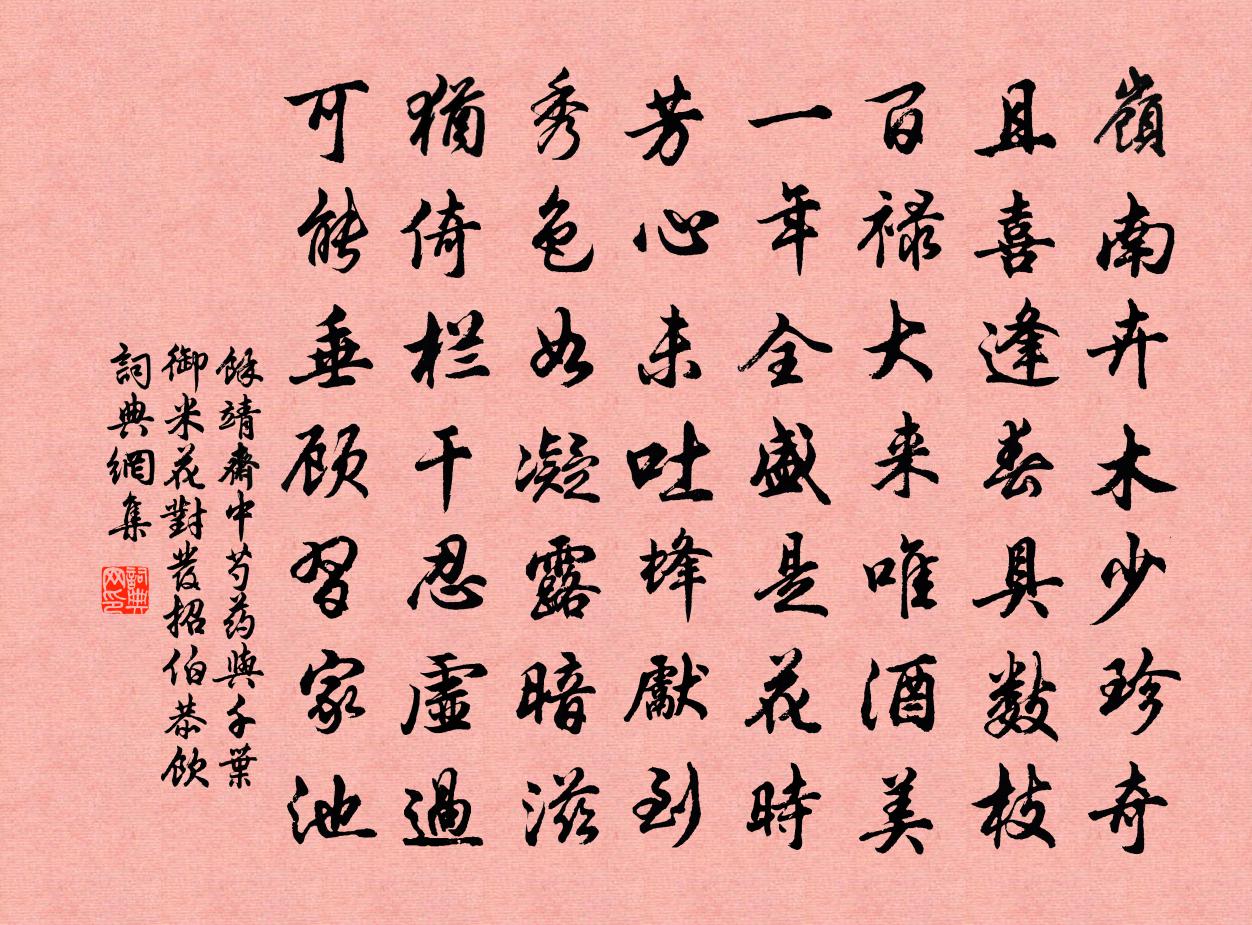 嶺南卉木少珍奇
且喜逢春具数枝
百禄大来唯酒美
一年全盛是花時
芳心未吐蜂獻到
秀色如凝露暗滋
猶倚栏干忍虛過
可能垂顾習家池
餘靖齋中芍药與千葉
御米花對發招伯恭飲
詞典網集
詞典网印